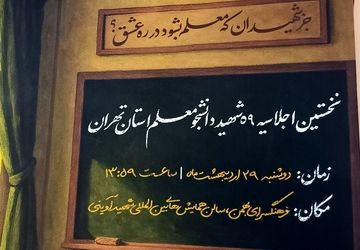 جز شهیدان که معلم بشود در ره عشق؟
نخستین اجلاسیه ۵۹ شهید دانشجو معلم استان تهران
زمان: دوشنبه ۲۹ اردیبهشت ماه | ساعت ۱۳:۵۹
مکان: فرهنگسرای بهمن، سالن همایش های بین المللی شهید آوینی